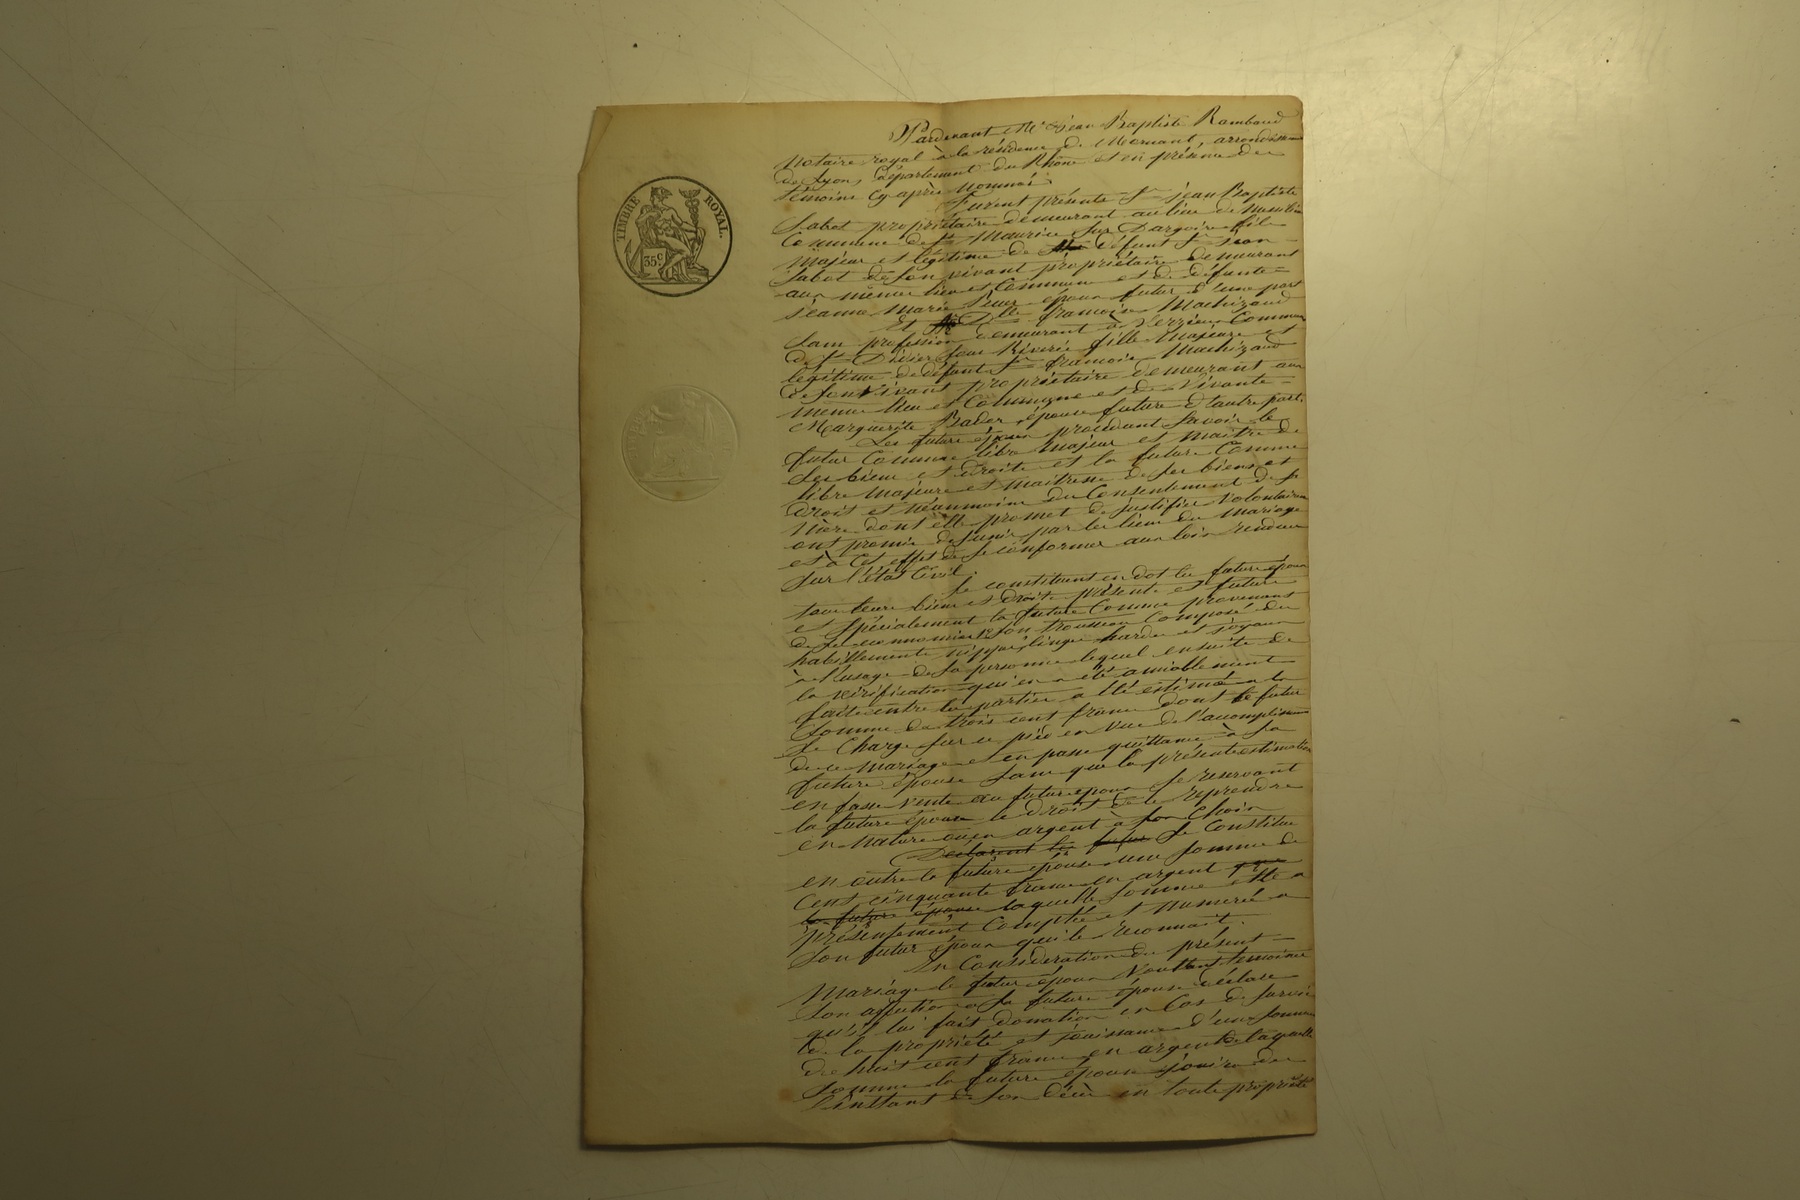 TIMBRE ROYAL.
35c
Pardevant Me Jean Baptiste Rambaud
Notaire royal à la résidence de Mornant, arrondissement
de Lyon, département du Rhône et en présence des
témoins cy après nommés
Furent présents Sr jean Baptiste
Sabot propriétaire demeurant au lieu de
Commune de St Maurice sur Dargoire fils
Majeur et légitime de défunt Sr jean
Sabot de son vivant propriétaire demeurant
aux mêmes lieu et Commune et de défunte
jeanne Marie époux futur d'une part
Et Dlle françoise Machizaud
sans profession demeurant à Commune
de St Didier sous Riverie fille Majeure et
légitime de défunt Sr françois Machizaud
de son vivant propriétaire demeurant aux
mêmes lieu et Commune et de vivante
Marguerite épouse future d'autre part.
Les futurs époux procédant savoir le
futur Comme libre Majeur et maître de
ses biens et droits et la future Comme
libre Majeure et maitresse de ses biens et
droits et néanmoins du Consentement de sa
Mère dont elle promet de justifier volontairement
ont promis de s'unir par les liens du mariage
et à cet effet de se conformer aux lois rendues
sur l'état Civil.
Se constituent en dot les futurs époux
tous leurs biens et droits présents et futurs
et spécialement la future Comme provenant
de ses économies son trousseau Composé des
habillements nippes linges hardes et joyaux
à l'usage de sa personne lequel ensuite de
la vérification qui en a été amiablement
faite entre les parties a été estimé à la
somme de trois cent francs dont le futur
se Charge sur ce pied en vue de l'accomplissement
de ce mariage et en passe quittance à sa
future épouse sans que la présente estimation
en fasse vente au futur époux se réservant
la future épouse le droit de le reprendre
en nature ou en argent à son Choix
Déclarent les futurs Se Constitue
en outre la future épouse une somme de
Cent cinquante francs en argent que
la future épouse laquelle somme elle a
présentement Comptée et numérée a
son futur époux qui le reconnait.
En Considération du présent
Mariage le futur époux Voulant témoigner
son affection à sa future épouse déclare
qu'il lui fait donation en Cas de survie
de la propriété et jouissance d'une somme
de huit cent francs en argent de laquelle
somme la future épouse jouira dès
l'instant de son décès en toute propriété